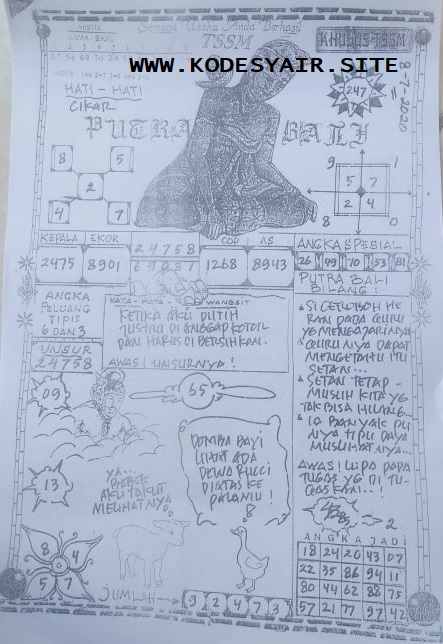 MISTIK
LIMA - BARU
Semoga Usaha Anda Berhasil
TSSM
KHUSUS-TSSM
WWW.KODESYAIR.SITE
8-7-2020
HATI - HATI
CIKAR
247
PUTRA BALI
8 5
2
4 7
9 1
5 7
2 4
8 0
KEPALA EKOR
2475 8901
24758
69031
COP AS
1268 8943
ANGKA SPESIAL
26 49 70 53 81
PUTRA BALI
BILANG:
ANGKA
PELUANG
TIPIS
6 DAN 3
KATA - KATA WANGSIT
KETIKA AKU PUTIH
JUSTRU DI ANGGAP KOTOR
DAN HARUS DI BERSIHKAN.
AWAS! UNSURNYA!
UNSUR
24758
SI CEROBOH HE
RAN PADA GURU
YG MENGAJARINYA
GURU NYA DAPAT
MENGETAHUI ITU
SETAN...
SETAN TETAP
MUSUH KITA YG
TAK BISA HILANG...
IA BANYAK PU
NYA TIPU DAYA
MUSLIHATNYA...
AWAS! LUPA PADA
TUGAS YG DI TU-
GASKAN..!
09
65
13
YA...
BEBEK
AKU TAKUT
MELIHATNYA
DOMBA BAYI
LIHAT ADA
DEWA RUCCI
DIATAS KE
PALAMU!
2
8 4
5 7
ANGKA JADI
18 24 20 43 07
22 35 86 94 11
80 44 62 88 75
57 21 77 97 42
JUMLAH → 9 2 4 7 3